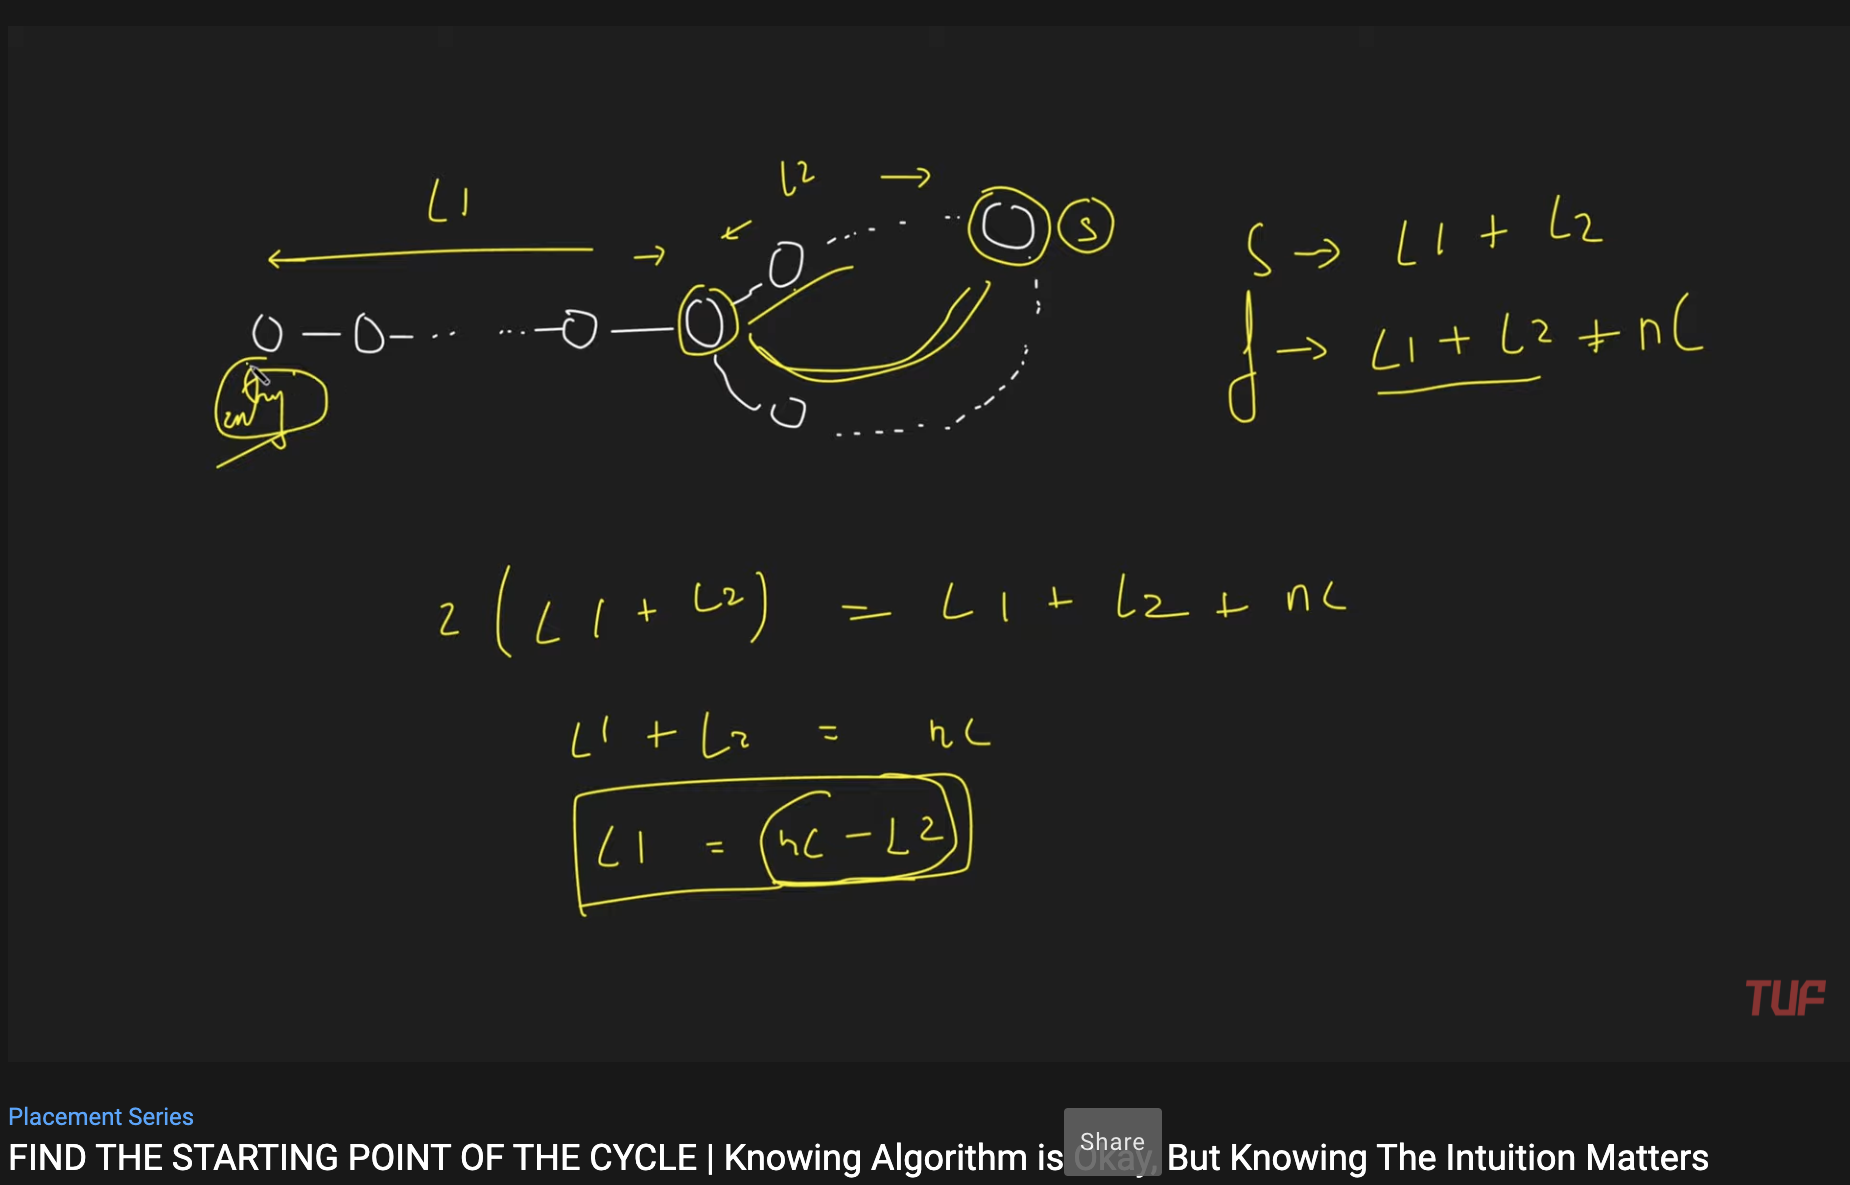 L1
L2
S
entry
S → L1 + L2
f → L1 + L2 + nC
2 ( L1 + L2 ) = L1 + L2 + nC
L1 + L2 = nC
L1 = nC - L2
TUF
Placement Series
FIND THE STARTING POINT OF THE CYCLE | Knowing Algorithm is Okay, But Knowing The Intuition Matters
Share